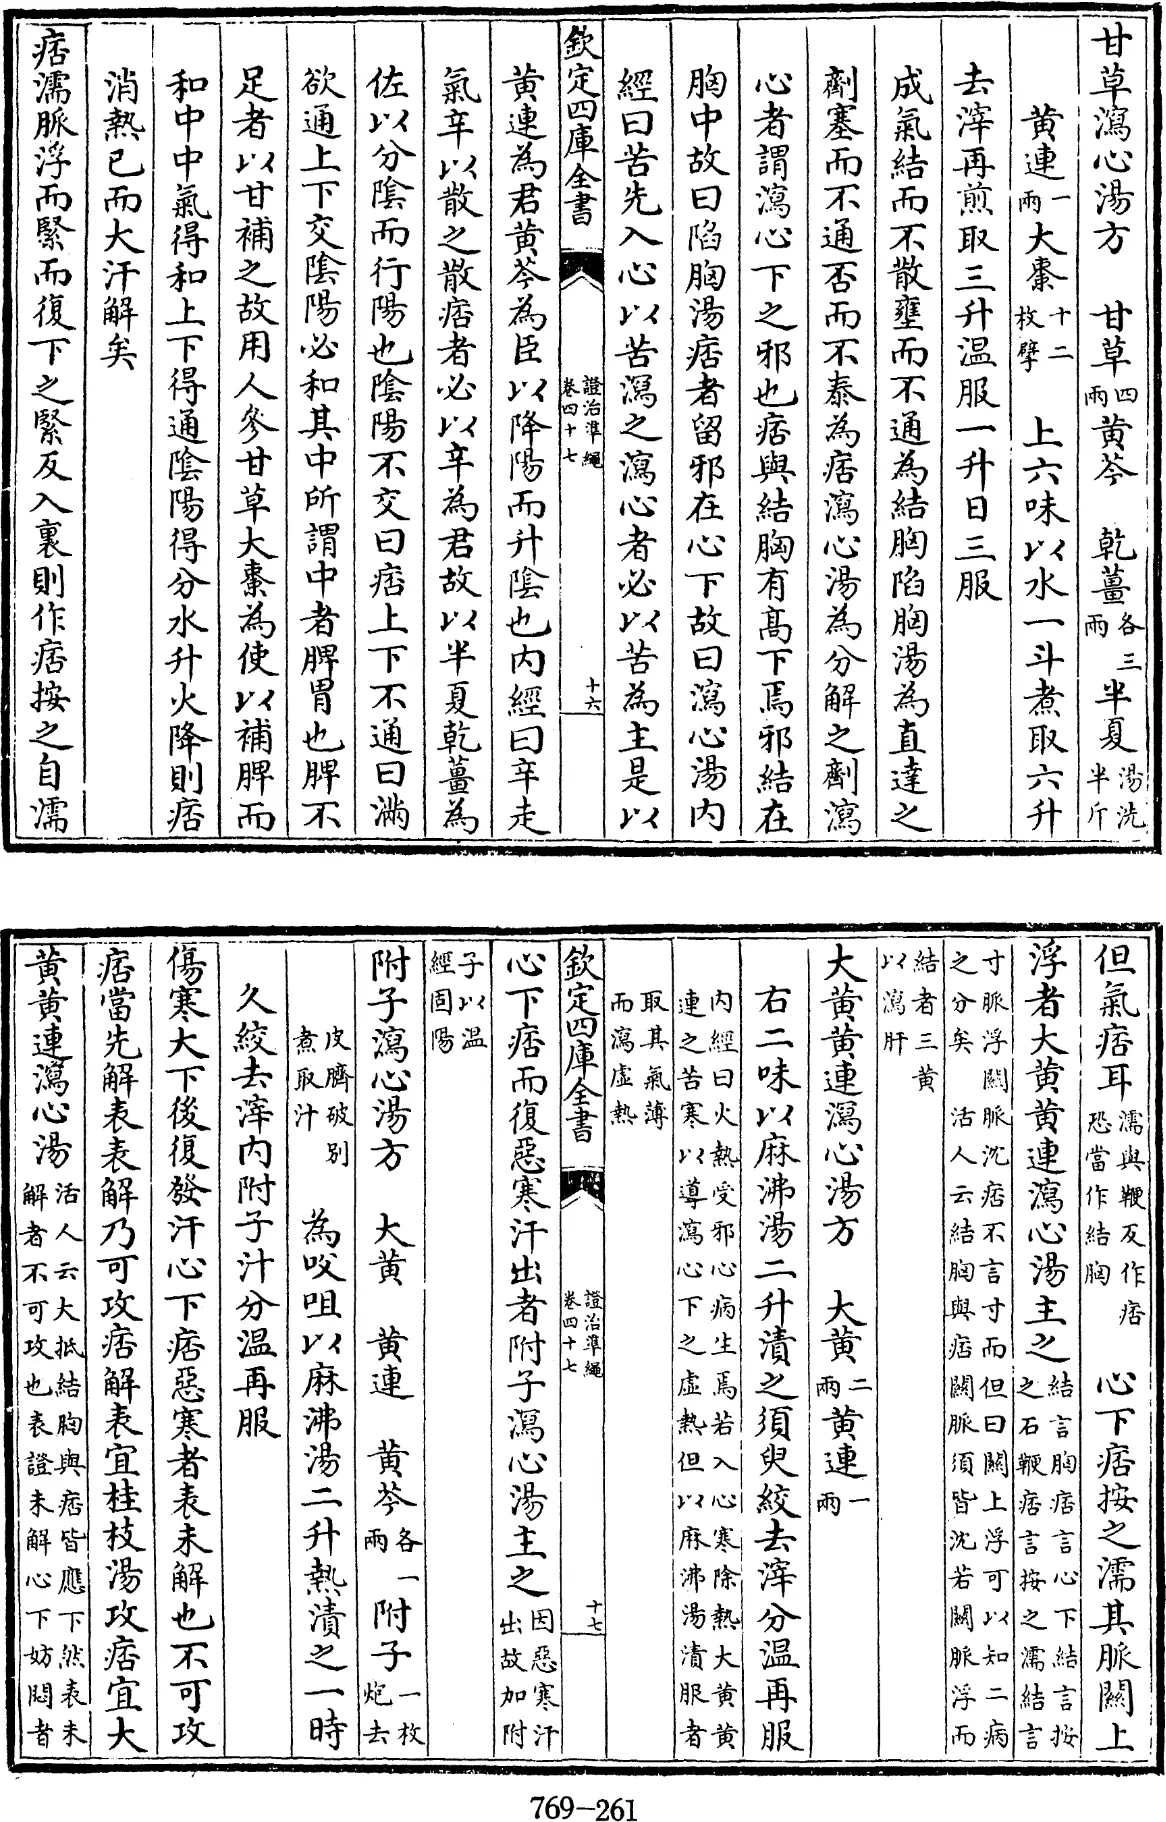 甘草瀉心湯方　甘草四兩黄芩　乾薑各三兩半夏湯洗半斤
黄連一兩大棗十二枚擘　上六味以水一斗煮取六升
去滓再煎取三升温服一升日三服
成氣結而不散壅而不通為結胸陷胸湯為直達之
劑塞而不通否而不泰為痞瀉心湯為分解之劑瀉
心者謂瀉心下之邪也痞與結胸有髙下焉邪結在
胸中故曰陷胸湯痞者留邪在心下故曰瀉心湯内
經曰苦先入心以苦瀉之瀉心者必以苦為主是以
欽定四庫全書　證治準繩卷四十七　十六
黄連為君黄芩為臣以降陽而升陰也内經曰辛走
氣辛以散之散痞者必以辛為君故以半夏乾薑為
佐以分陰而行陽也陰陽不交曰痞上下不通曰滿
欲通上下交陰陽必和其中所謂中者脾胃也脾不
足者以甘補之故用人參甘草大棗為使以補脾而
和中中氣得和上下得通陰陽得分水升火降則痞
消熱已而大汗解矣
痞濡脈浮而緊而復下之緊反入裏則作痞按之自濡
但氣痞耳濡與鞕反作痞恐當作結胸　心下痞按之濡其脈闗上
浮者大黄黄連瀉心湯主之結言胸痞言心下結言按之石鞕痞言按之濡結言
寸脈浮闗脈沈痞不言寸而但曰闗上浮可以知二病之分矣　活人云結胸與痞闗脈須皆沈若闗脈浮而
結者三黄以瀉肝
大黄黄連瀉心湯方　大黄二兩黄連一兩
右二味以麻沸湯二升漬之須臾絞去滓分温再服
内經曰火熱受邪心病生焉若入心寒除熱大黄黄連之苦寒以導瀉心下之虛熱但以麻沸湯漬服者
取其氣薄而瀉虛熱
欽定四庫全書　證治準繩卷四十七　十七
心下痞而復惡寒汗出者附子瀉心湯主之因惡寒汗出故加附
子以温經固陽
附子瀉心湯方　大黄　黄連　黄芩各一兩附子一枚炮去
皮臍破别煮取汁　為㕮咀以麻沸湯二升熱漬之一時
久絞去滓内附子汁分温再服
傷寒大下後復發汗心下痞惡寒者表未解也不可攻
痞當先解表表解乃可攻痞解表宜桂枝湯攻痞宜大
黄黄連瀉心湯活人云大抵結胸與痞皆應下然表未解者不可攻也表證未解心下妨悶者
769-261